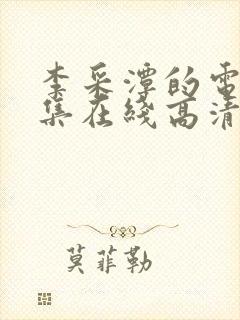 李采潭的電
集在綫高清
莫菲勒